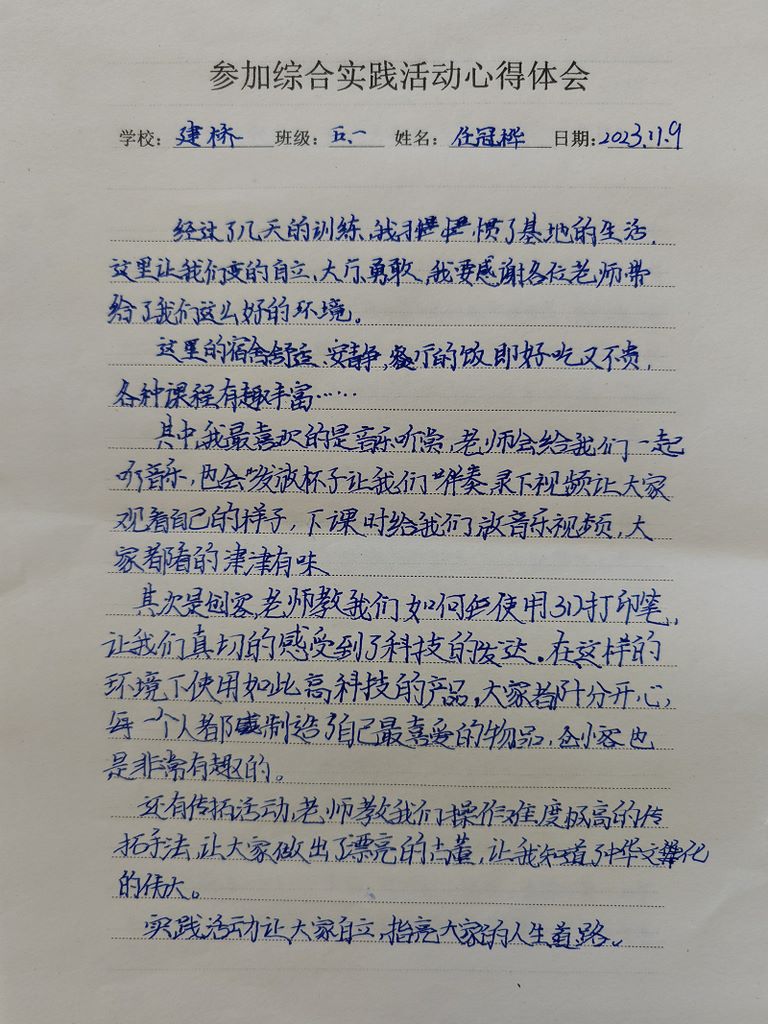 参加综合实践活动心得体会
学校：建桥 班级：五、一 姓名：任冠桦 日期：2023.11.9
经过了几天的训练，我习惯了基地的生活，
这里让我们变的自立、大方、勇敢，我要感谢各位老师带
给了我们这么好的环境。
这里的宿舍舒适、安静，餐厅的饭即好吃又不贵，
各种课程有趣丰富……
其中，我最喜欢的是音乐听赏，老师会给我们一起
听音乐，也会发放杯子让我们伴奏，录下视频让大家
观看自己的样子，下课时给我们放音乐视频，大
家都看的津津有味、
其次是创客，老师教我们如何使用3D打印笔，
让我们真切的感受到了科技的发达。在这样的
环境下使用如此高科技的产品，大家都十分开心，
每一个人都制造了自己最喜爱的物品，创客也
是非常有趣的。
还有传拓活动，老师教我们操作难度极高的传
拓手法，让大家做出了漂亮的古董，让我知道了中华文化
的伟大。
实践活动让大家自立，指亮大家的人生道路。